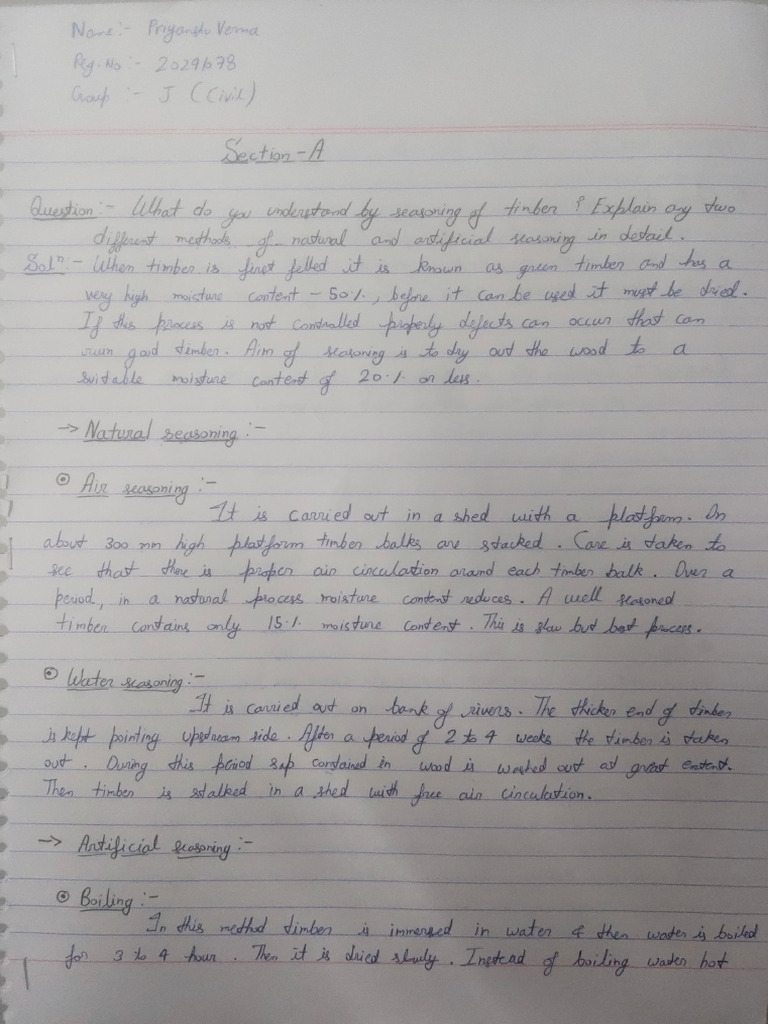 Name :- Priyanshu Verma
Reg. No :- 2029678
Group :- J (Civil)
Section - A
Question :- What do you understand by seasoning of timber ? Explain any two
different methods of natural and artificial seasoning in detail.
Solⁿ :- When timber is first felled it is known as green timber and has a
very high moisture content - 50%, before it can be used it must be dried.
If this process is not controlled properly defects can occur that can
ruin good timber. Aim of seasoning is to dry out the wood to a
suitable moisture content of 20% or less.
→ Natural seasoning :-
⊙ Air seasoning :-
It is carried out in a shed with a platform. On
about 300 mm high platform timber balks are stacked. Care is taken to
see that there is proper air circulation around each timber balk. Over a
period, in a natural process moisture content reduces. A well seasoned
timber contains only 15% moisture content. This is slow but best process.
⊙ Water seasoning :-
It is carried out on bank of rivers. The thicker end of timber
is kept pointing upstream side. After a period of 2 to 4 weeks the timber is taken
out. During this period sap contained in wood is washed out at great extent.
Then timber is stalked in a shed with free air circulation.
→ Artificial seasoning :-
⊙ Boiling :-
In this method timber is immersed in water & then water is boiled
for 3 to 4 hour. Then it is dried slowly. Instead of boiling water hot